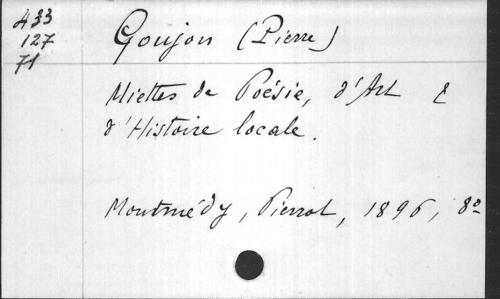 433
127
71
Goujon (Pierre)
Miettes de Poésie, d'Art &
d'Histoire locale.
Montmédy, Pierrot, 1896, 8º